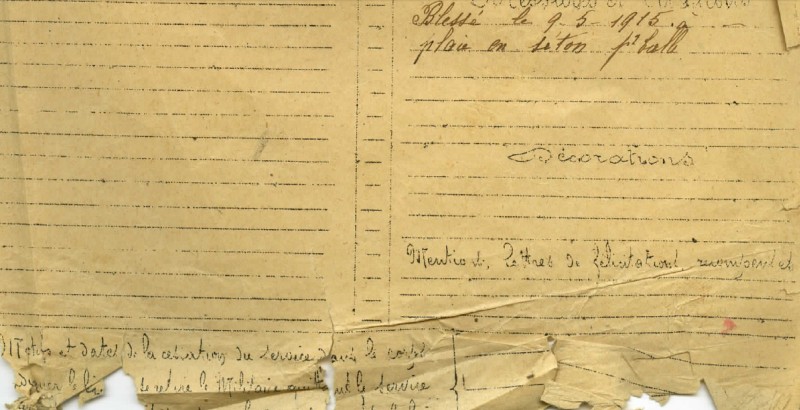 Blessures et
Blessé le 9-5-1915. à
plaie en séton pr balle
Décorations
Mentions, Lettres de félicitations, récompenses
Motifs et dates de la cessation du Service dans le corps
se retire le Militaire quittant le service